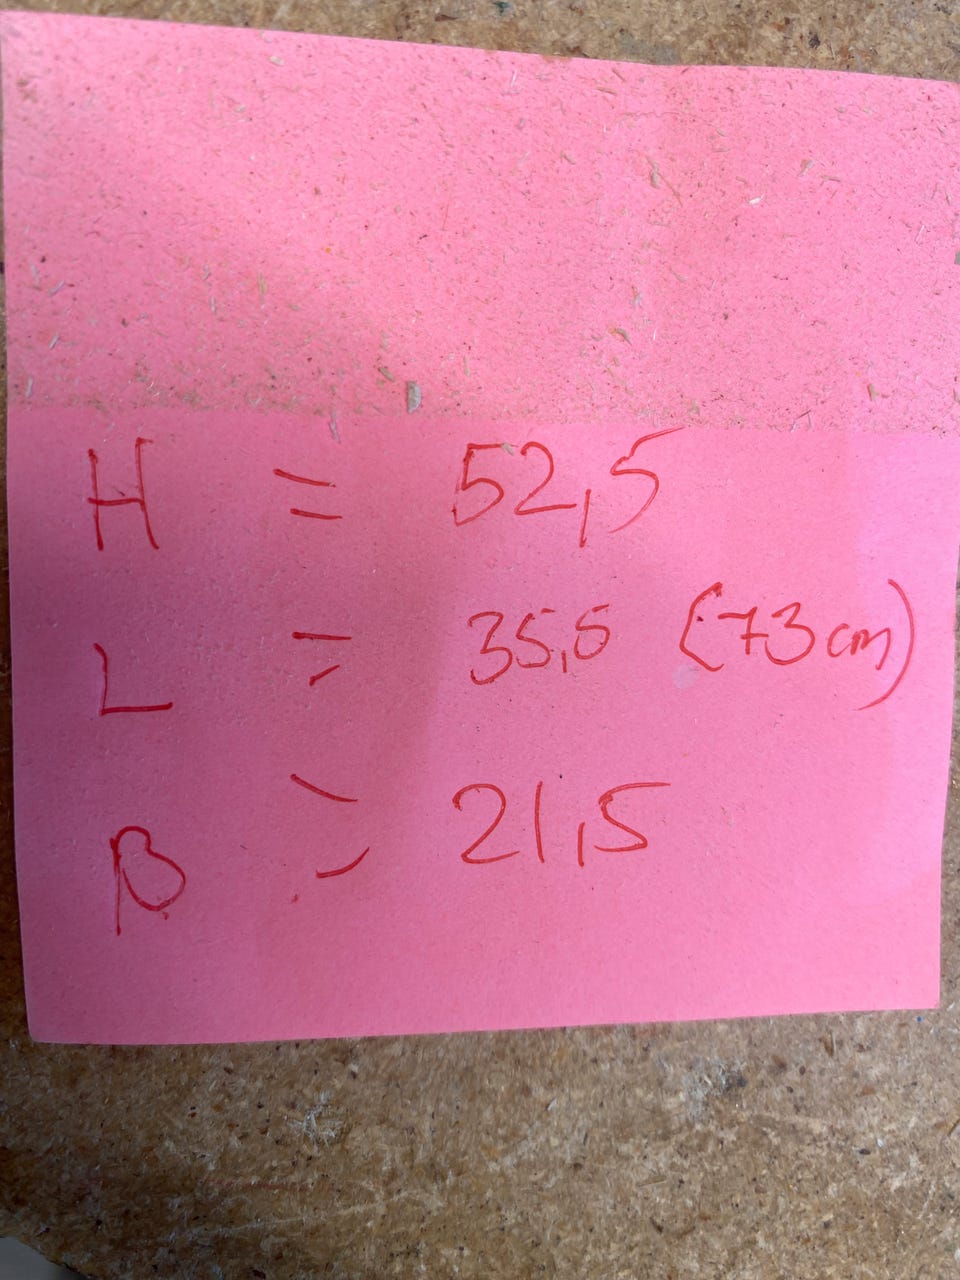 H = 52,5
L = 35,5 (73 cm)
B = 21,5